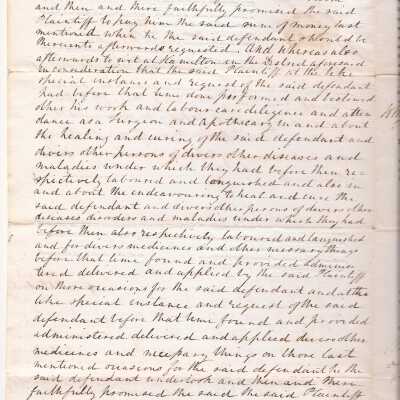 and then and there faithfully promised the said
Plaintiff to pay him the said sum of money last
mentioned when he the said defendant should be
thereunto afterwards requested. And whereas also
afterwards to wit at Hamilton in the District aforesaid
in consideration that the said Plaintiff at the like
special instance and request of the said defendant
had before that time done performed and bestowed
other his work and labour care diligence and atten
dance as a Surgeon and apothecary in and about
the healing and curing of the said defendant and
divers other persons of divers other diseases and
maladies under which they had before then re-
spectively laboured and languished and also in
and about the endeavouring to heal and cure the
said defendant and divers other persons of divers other
diseases disorders and maladies under which they had
before then also respectively laboured and languished
and for divers medicines and other necessary things
before that time found and provided adminis-
tered delivered and applied by the said Plaintiff
on those occasions for the said defendant and at the
like special instance and request of the said
defendant before that time found and provided
administered delivered and applied divers other
medicines and necessary things on those last
mentioned occasions for the said defendant he the
said defendant undertook and then and there
faithfully promised the said the said Plaintiff